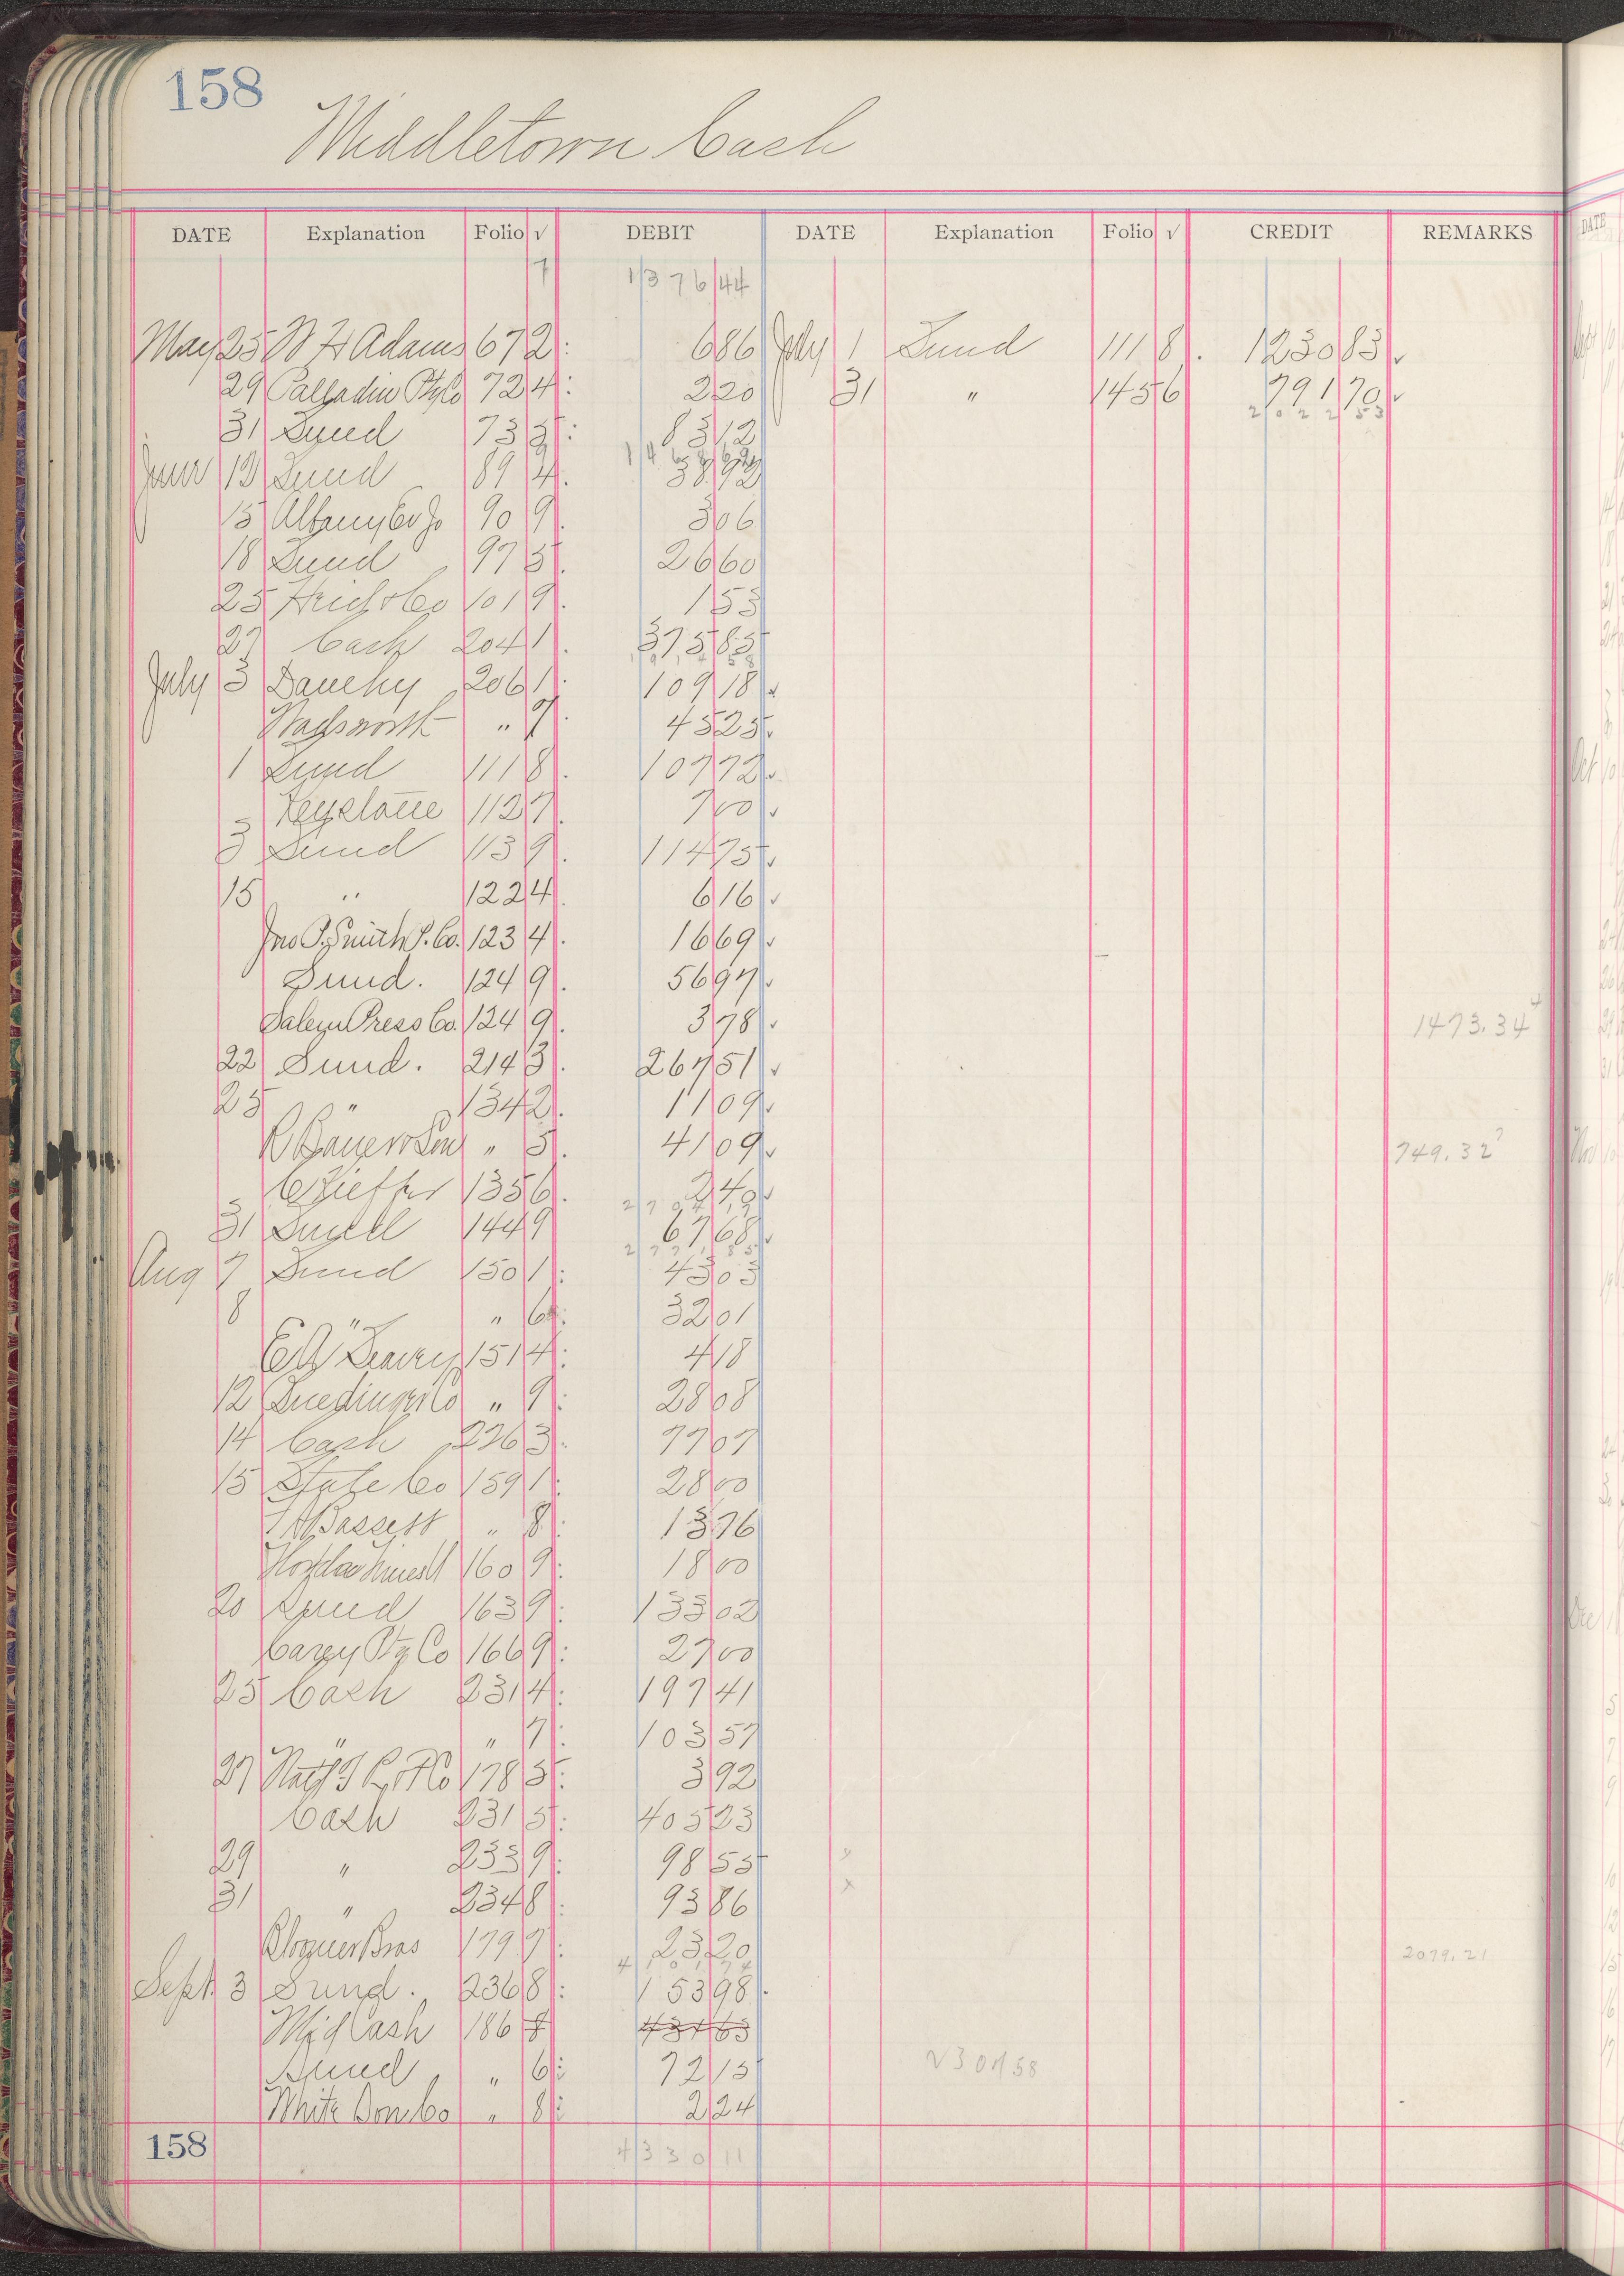 158
Middletown Cash
DATE Explanation Folio √ DEBIT DATE Explanation Folio √ CREDIT REMARKS
7 1376 44
May 25 W H Adams 672: 6 86 July 1 Sund 1118. 1230 83 √
29 Palladin Ptg Co 724: 2 20 31 " 1456 791 70 √
2022 53
31 Sund 735: 83 12
June 13 Sund 894. 38 92
15 Albany Ev Jo 909. 3 06
18 Sund 975. 26 60
25 & Co 1019. 1 53
27 Cash 2041. 375 85
July 3 Dauchy 2061: 109 18 √
Wadsworth " 7. 45 25 √
1 Sund 1118. 107 72 √
Keystone 1127. 7 00 √
3 Sund 1139. 114 75 √
15 " 1224. 6 16 √
Jno P. Smith P. Co. 1234. 16 69 √
Sund. 1249. 56 97 √
Salem Press Co. 1249. 3 78 √ 1473.34
22 Sund. 2143. 267 51 √
25 " 1342. 11 09 √
R Bauer & Son " 5. 41 09 √ 749.32
Kieffer 1356. 2 40 √
31 Sund 1449 67 68 √
Aug 7 Sund 1501: 43 03
8 " " 6: 32 01
1514: 4 18
12 " 9: 28 08
14 Cash 2263: 77 07
15 State Co 1591: 28 00
Bassett " 8: 13 76
1609: 18 00
20 Sund 1639: 133 02
Carey Ptg Co 1669: 27 00
25 Cash 2314: 197 41
" " 7: 103 57
27 1785: 3 92
Cash 2315: 405 23
29 " 2339: 98 55
31 " 2348: 93 86
Bros 1797: 23 20 2079.21
Sept. 3 Sund. 2368: 153 98
Mid Cash 1868 431 63
Sund " 6: 72 15
White Co " 8: 2 24
158 4330 11